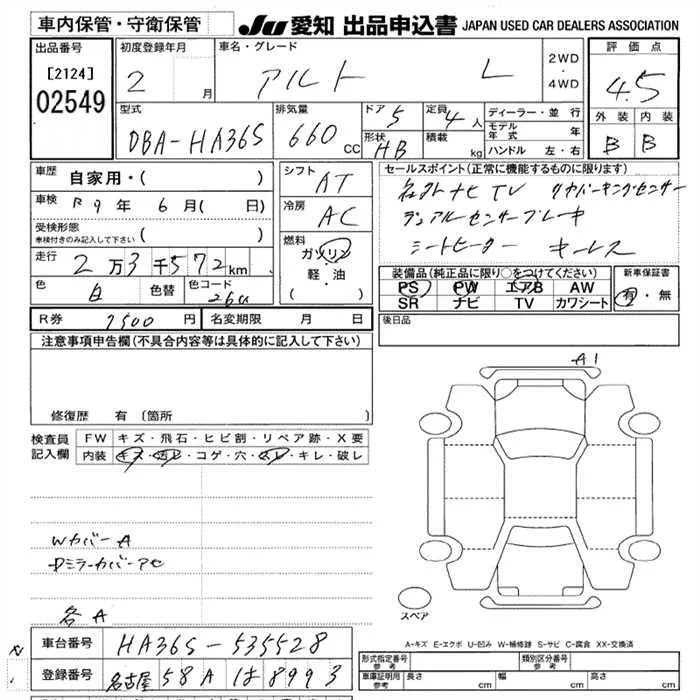 車内保管・守衛保管
JU 愛知 出品申込書 JAPAN USED CAR DEALERS ASSOCIATION
出品番号
[2124]
02549
初度登録年月
2 月
車名・グレード
アルト L
2WD
・
4WD
評価点
4.5
型式
DBA-HA36S
排気量
660 cc
ドア 5
形状 HB
定員 4 人
積載 kg
ディーラー・並行
モデル年式 年
ハンドル 左・右
外装 内装
B B
車歴 自家用・( )
車検 R9年 6月( 日)
受検形態
車検付きのみ記入して下さい ( )
走行 2万3千572km
色 白 色替 色コード 26U
シフト AT
冷房 AC
燃料
ガソリン
軽・油
( )
セールスポイント(正常に機能するものに限ります)
ナビ TV リヤパーキングセンサー
デュアルセンサーブレーキ
シートヒーター キーレス
装備品(純正品に限り○をつけてください)
PS PW エアB AW
SR ナビ TV カワシート
新車保証書
有・無
後日品
R券 7500円 名変期限 月 日
注意事項申告欄(不具合内容等は具体的に記入して下さい)
修復歴 有 〔箇所
検査員記入欄
FW キズ・飛石・ヒビ割・リペア跡・X要
内装 キズ・汚レ・コゲ・穴・スレ・キレ・破レ
WカバーA
Dミラーカバーアセ
各A
A1
スペア
A-キズ E-エクボ U-凹み W-補修跡 S-サビ C-腐食 XX-交換済
車台番号 HA36S-535528
登録番号 名古屋 58A は 8993
形式指定番号 参考
類別区分番号 参考
車庫証明用 参考 長さ cm 幅 cm 高さ cm